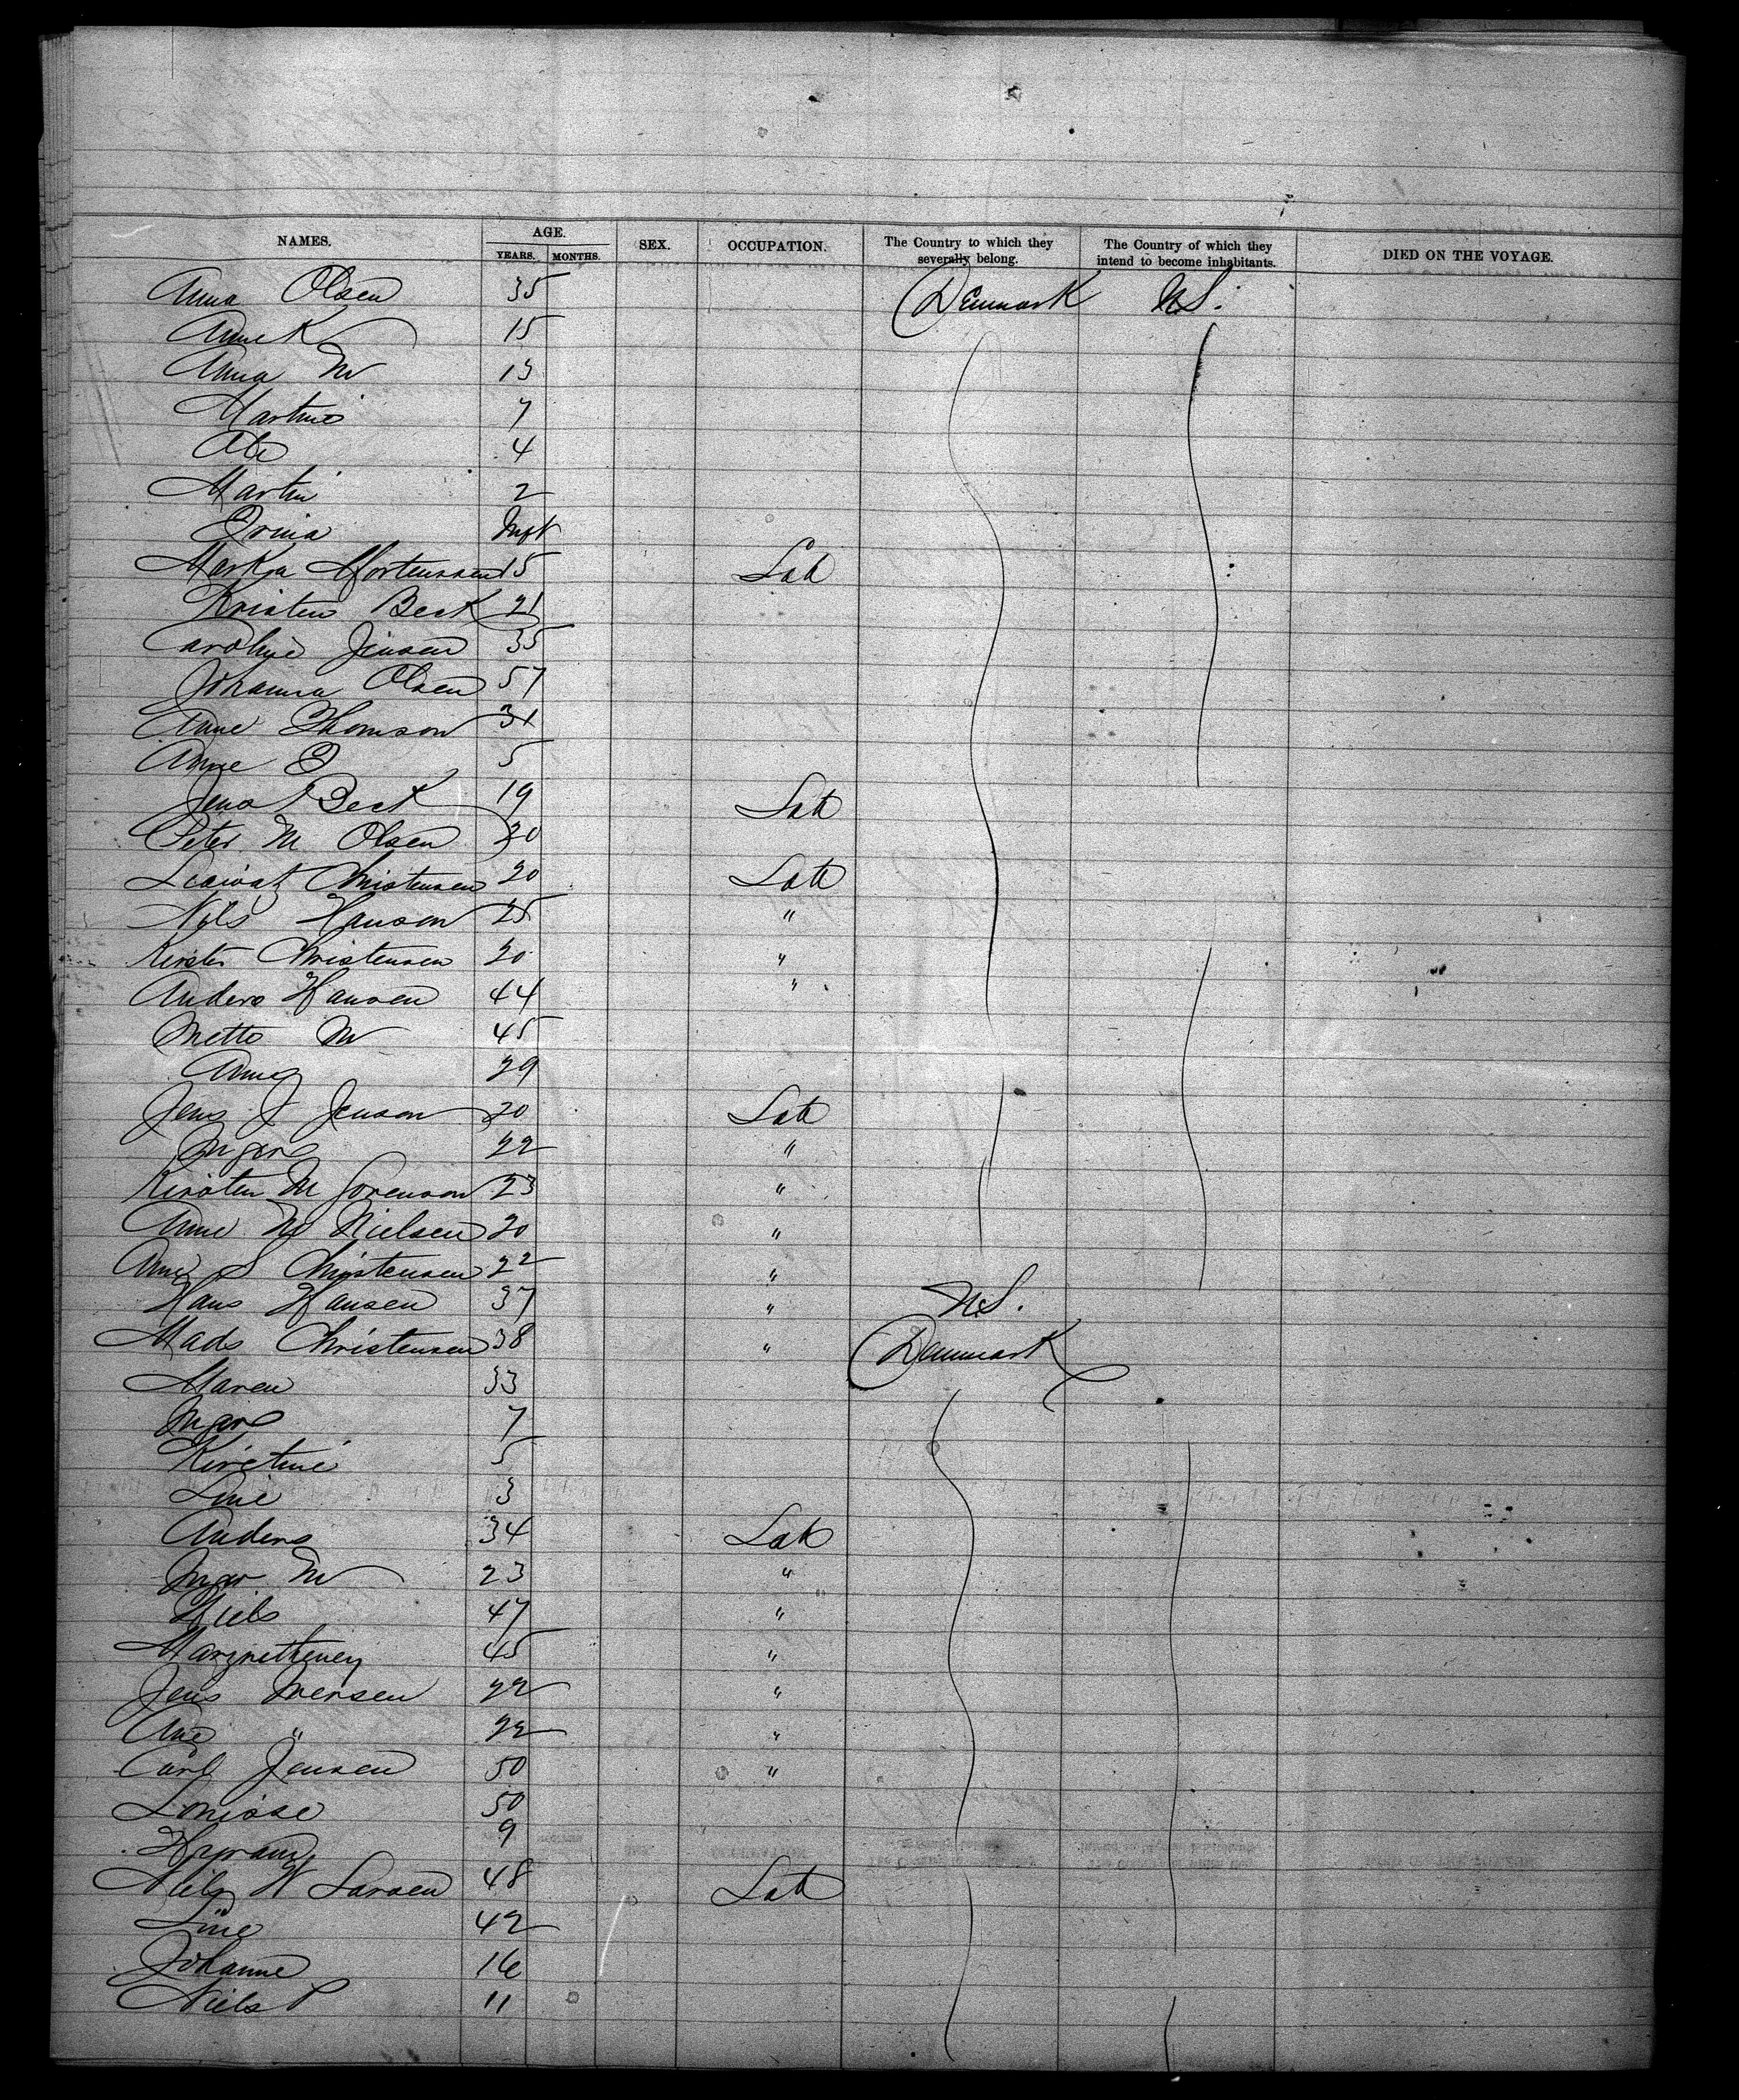 NAMES. AGE. YEARS. MONTHS. SEX. OCCUPATION. The Country to which they severally belong. The Country of which they intend to become inhabitants. DIED ON THE VOYAGE.
Anna Olsen 35 Denmark U.S.
Anne K 15
Anna M 13
Martine 7
Ole 4
Martin 2
Inft
Mortensen 15 Lab
Kristen Beck 21
Caroline Jensen 35
Johanna Olsen 57
Anne Thomson 31
Anne E 5
Jens Beck 19 Lab
Peter M Olsen 30
Christensen 20 Lab
Nils Hanson 25 "
Kirsten Christensen 20 "
Anders Hansen 44 "
Mette M 45
Anne 29
Jens J Jenson 20 Lab
Inger 22 "
Kirsten M Sorenson 23 "
Anne M Nielsen 20 "
Anne S Christensen 22 "
Hans Hansen 37 " U.S.
Mads Christensen 38 " Denmark
Maren 33
Inger 7
Kirstine 5
Line 3
Anders 34 Lab
Inger M 23 "
Niels 47 "
45 "
Jens Iversen 22 "
Ane " 22 "
Carl Jensen 50 "
Lonisse 50
9
Niels W Larsen 48 Lab
Line 42
Johanne 16
Niels P 11